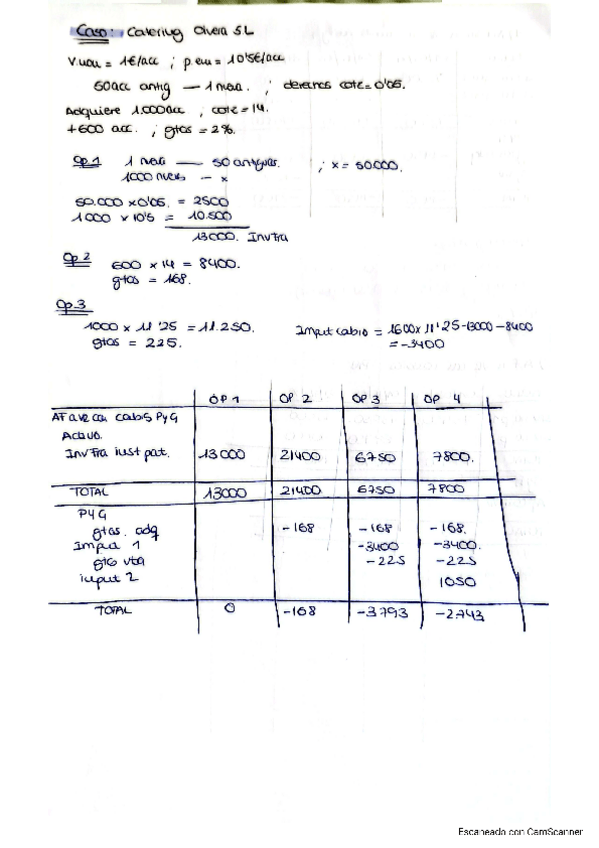 Caso: Catering Olvera SL
V.nou = 1€/acc ; p.em = 10'5€/acc
50acc antig — 1 nova. ; derechos cote = 0'05.
Adquiere 1.000acc ; cote = 14.
+600 acc. ; gtos = 2%.
Op.1 1 nova — 50 antiguas. ; x = 50.000.
1000 nuevas — x
50.000 x 0'05. = 2500
1000 x 10'5 = 10.500
13000. Invfra
Op.2 600 x 14 = 8400.
gtos = 168.
Op.3
1000 x 11'25 = 11.250. Input cabio = 1600x11'25-13000-8400
gtos = 225. = -3400
OP 1 OP 2 OP 3 OP 4
AF a vr con cabis PyG
Activo.
Invfra inst pat. 13000 21400 6750 7800.
TOTAL 13000 21400 6750 7800
PyG
gtos. adq -168 -168 -168.
Input 1 -3400 -3400.
gto vta -225 -225
input 2 1050
TOTAL 0 -168 -3793 -2.743
Escaneado con CamScanner